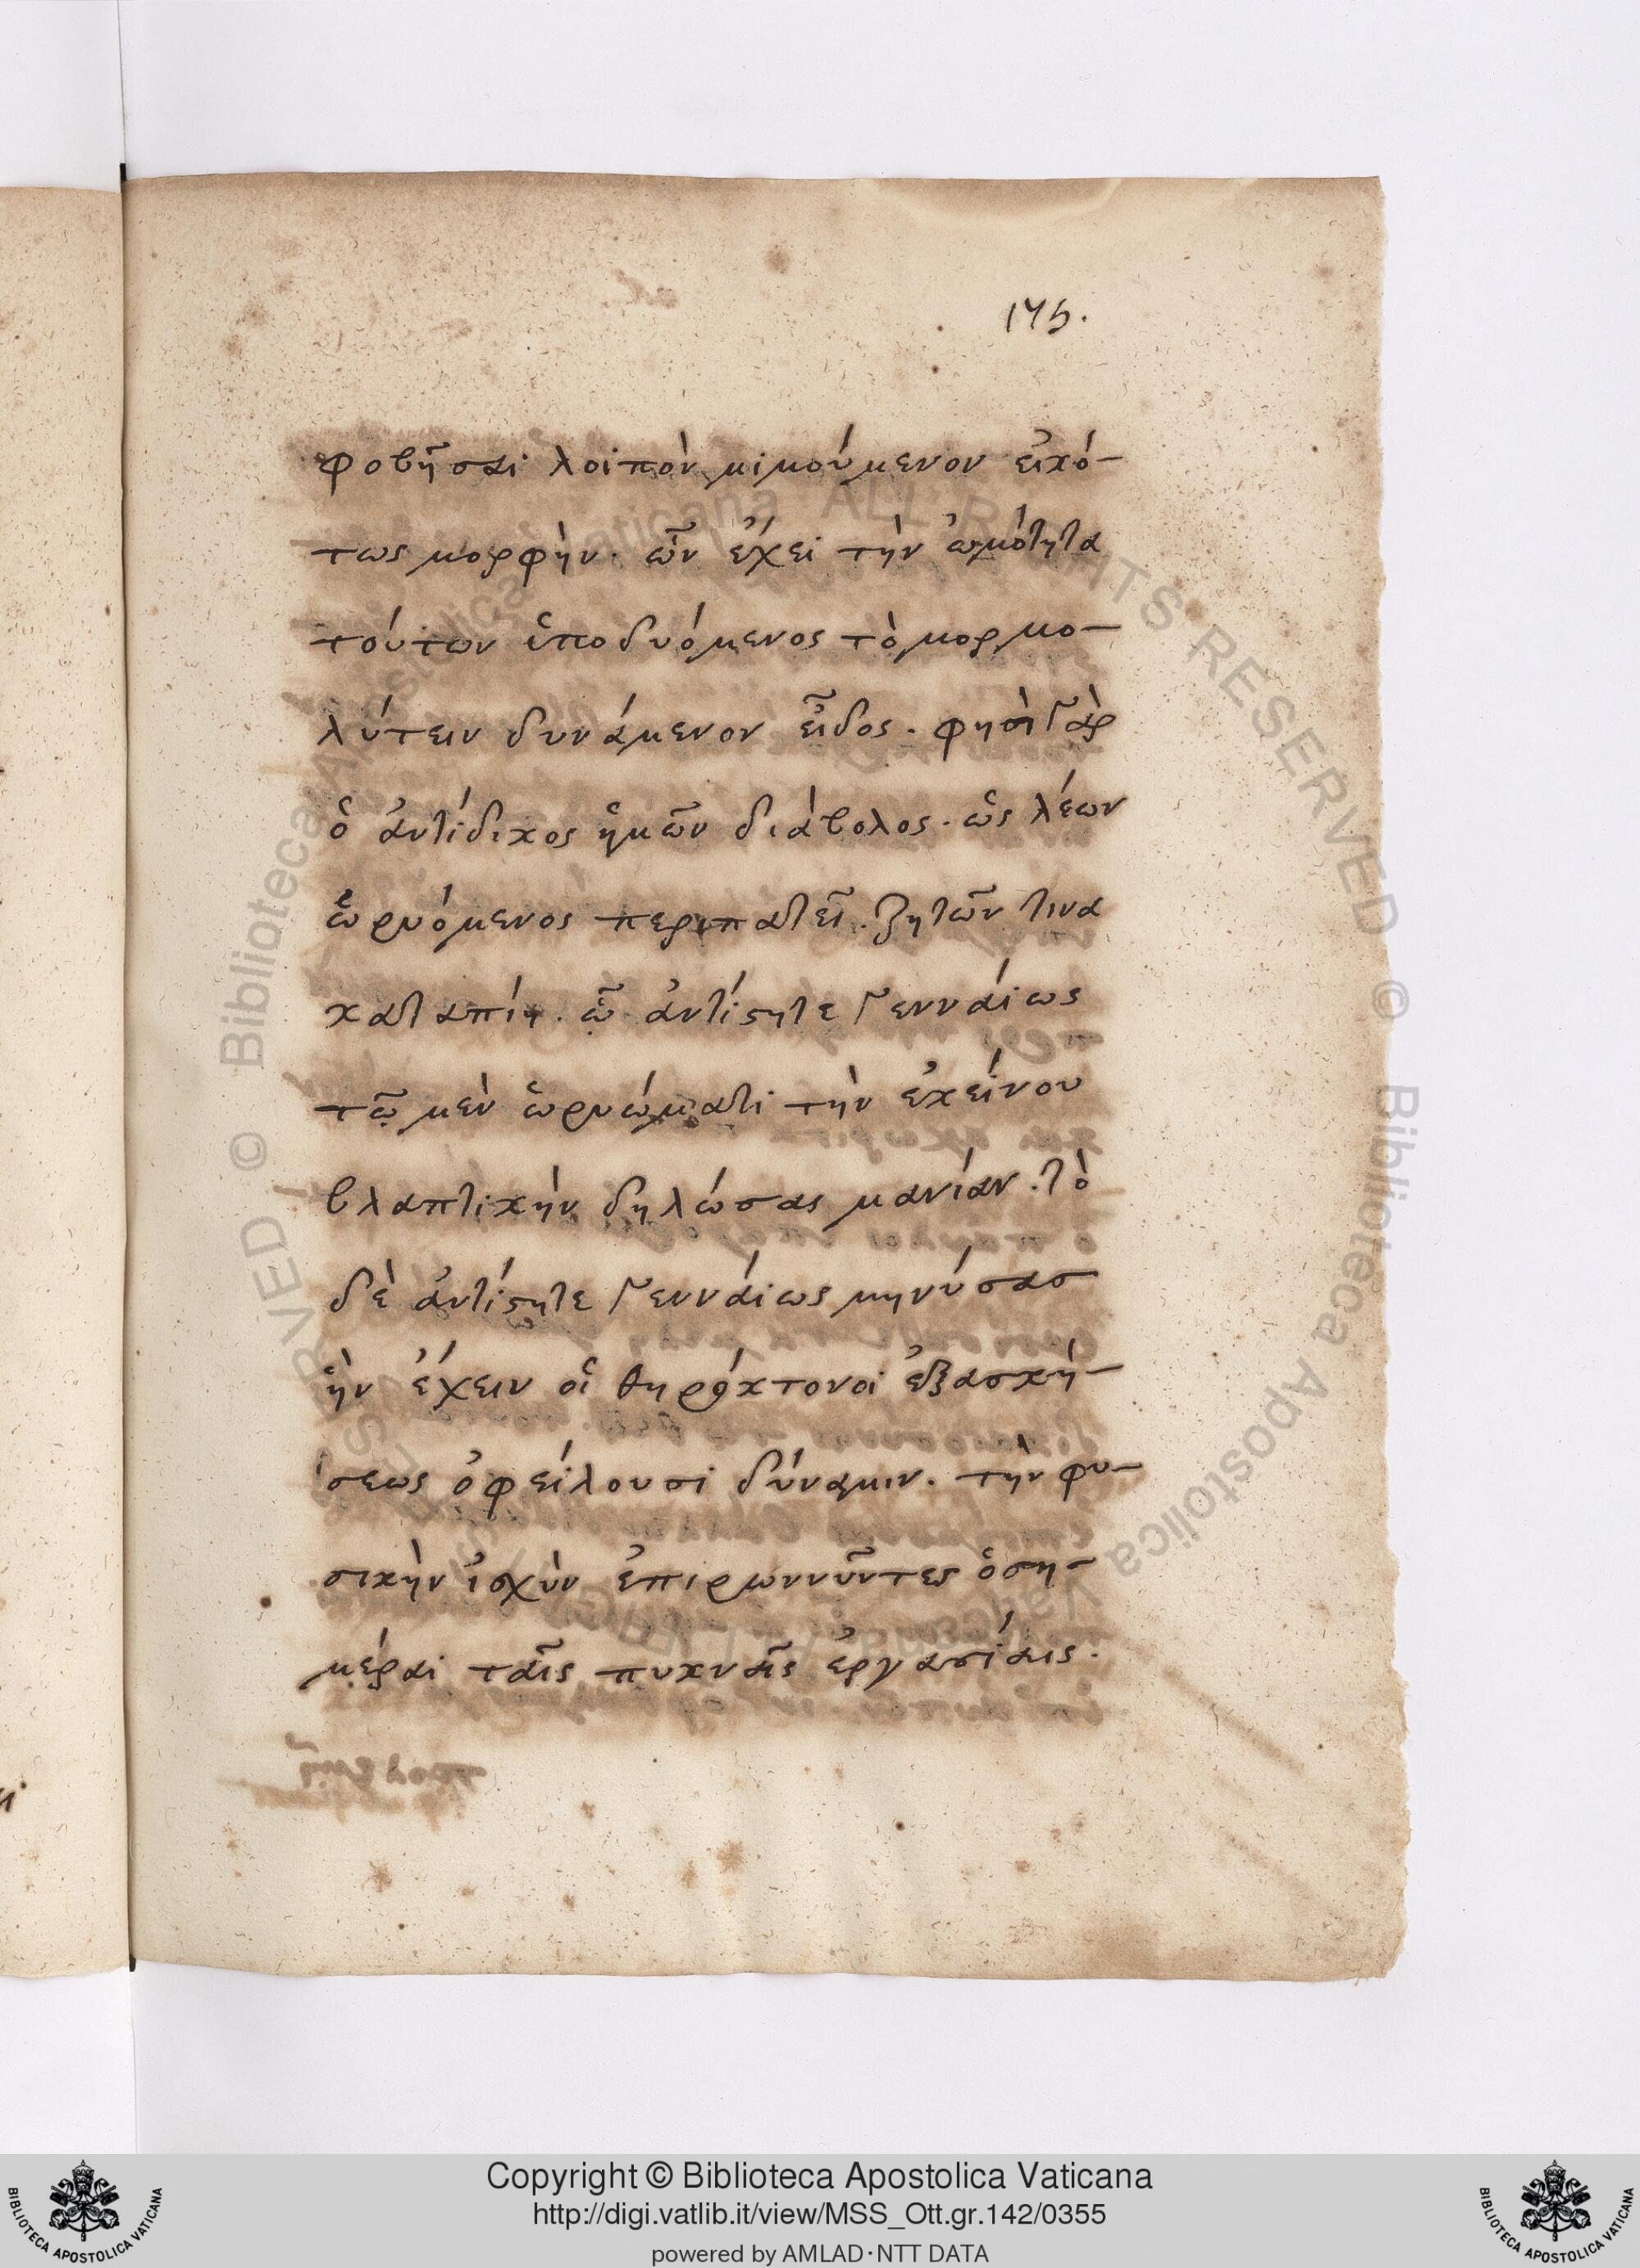 175.
φοβῆσαι λοιπὸν μιμούμενον εἰκό-
τως μορφὴν. ὧν ἔχει τὴν ὠμότητα
τούτων ὑποδυόμενος τὸ μορμο-
λύτειν δυνάμενον εἶδος. φησὶ γὰρ
ὁ ἀντίδικος ἡμῶν διάβολος. ὡς λέων
ὡρυόμενος περιπατεῖ. ζητῶν τινα
καταπίῃ. ᾧ ἀντίστητε γενναίως
τῷ μὲν ὡρυώματι τὴν ἐκείνου
βλαπτικὴν δηλώσας μανίαν. τὸ
δὲ ἀντίστητε γενναίως μηνύσασ
ἣν ἔχειν οἱ θηρόκτονοι ἐξασκή-
σεως ὀφείλουσι δύναμιν. τὴν φυ-
σικὴν ἰσχὺν ἐπιρωννῦντες ὁση-
μέραι ταῖς πυκναῖς ἐργασίαις.
Copyright © Biblioteca Apostolica Vaticana
http://digi.vatlib.it/view/MSS_Ott.gr.142/0355
powered by AMLAD·NTT DATA
BIBLIOTECA APOSTOLICA VATICANA
BIBLIOTECA APOSTOLICA VATICANA